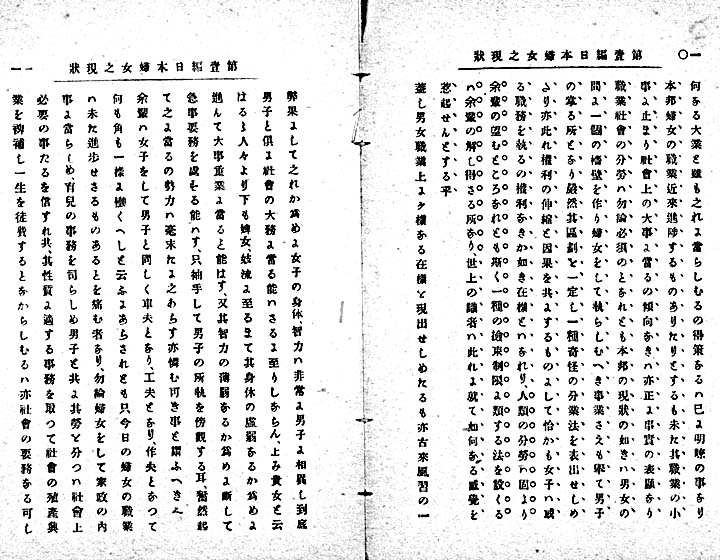 一〇 第壹編日本婦女之現狀
何なる大業と雖も之れよ當らしむるの得策なるハ已よ明瞭の事なり
本邦婦女の職業近來進陟するものありたりとするも未た其職業の小
事よ止まり社會上の大事よ當るの傾向なきハ亦正よ事實の表顯なり
職業社會の分勞ハ勿論必須のとなれとも本邦の現狀の如きハ男女の
間よ一個の墻壁を作り婦女をして執らしむへき事業さえも擧て男子
の掌る所となり嚴然其區劃を一定し一種奇怪の分業法を表出せしめ
より亦此れ權利の伸縮と因果を共よするものよして恰かも女子ハ或
る職務を執るの權利なきか如き在樣といなれり、人類の分勞ハ固より
余輩の望むところなれとも斯く一種の撿束制限よ類する法を設くる
ハ余輩の解し得さる所なり世上の識者ハ此れよ就て如何なる感覺を
惹起せんとする乎
蓋し男女職業上よ夕樣なる在樣と現出せしめたるも亦古來風習の一
第壹編日本婦女之現狀 一一
弊果よして之れか爲めよ女子の身体、智力ハ非常よ男子よ相異し到底
男子と俱よ社會の大務よ當る能ハさるよ至りしならん、上み貴女と云
はるゝ人々より下も婢女、妓流よ至るまて其身体の虛弱なるか爲めよ
進んて大事重業よ當ると能はす、又其智力の薄弱なるか爲めよ斷して
急事要務を處する能ハす、只袖手して男子の所執を傍觀する耳、奮然起
て之よ當るの勢力ハ毫末たよ之あらす亦憐む可き事と謂ふへきなり
余輩ハ女子をして男子と同しく車夫となり、工夫となり、作夫となつて
何も角も一樣よ働くへしと云ふよあらされとも只今日の婦女の職業
ハ未た進歩せさるものあるとを痛む者なり、勿論婦女をして家政の內
事よ當らしめ、育兒の事務を司らしめ男子と共よ其勞と分つハ社會上
必要の事たるを信すれ共、其性質よ適する事務を取つて社會の殖產興
業を裨補し一生を徒費するとなからしむるハ亦社會の要務なる可し